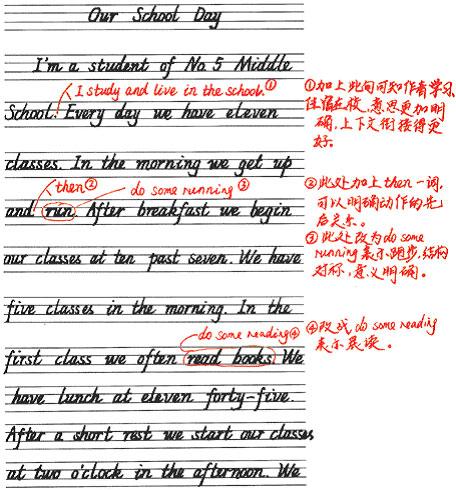 Our School Day
I'm a student of No.5 Middle
I study and live in the school.①
School. Every day we have eleven
classes. In the morning we get up
then②
do some running③
and run. After breakfast we begin
our classes at ten past seven. We have
five classes in the morning. In the
do some reading④
first class we often read books. We
have lunch at eleven forty-five.
After a short rest we start our classes
at two o'clock in the afternoon. We
①加上此句可知作者学习、
住宿在校，意思更加明
确，上下文衔接得更
好。
②此处加上then一词，
可以明确动作的先
后关系。
③此处改为do some
running表示跑步，结构
对称，意义明确。
④改成do some reading
表示晨读。